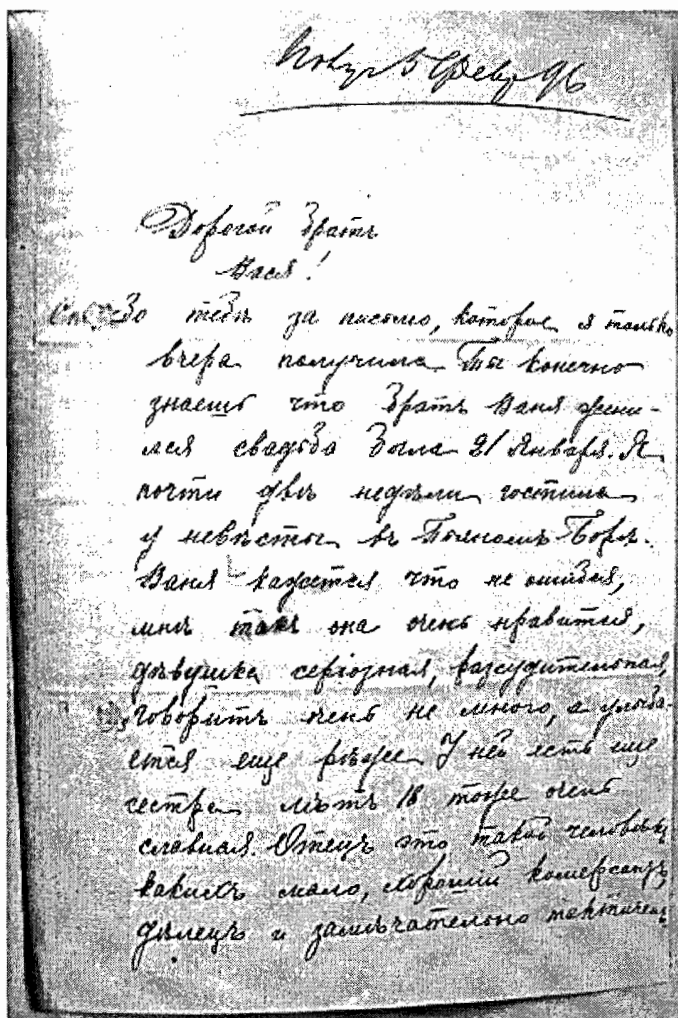 Получ 5 Февр 96
Дорогой братъ
Вася!
Спасибо тебѣ за письмо, которое я только
вчера получила Ты конечно
знаешь что братъ Ваня жени-
лся свадьба была 21 Января. Я
почти двѣ недѣли гостила
у невѣсты въ Боръ.
Ваня кажется что не ошибся,
мнѣ такъ она очень нравится,
дѣвушка серіозная, разсудительная,
говоритъ очень не много, а улыба-
ется еще рѣже У неё есть еще
сестра лѣтъ 18 тоже очень
славная. Отецъ это такой человѣкъ
какихъ мало, хорошій комерсантъ,
дѣлецъ и замѣчательно тактиченъ